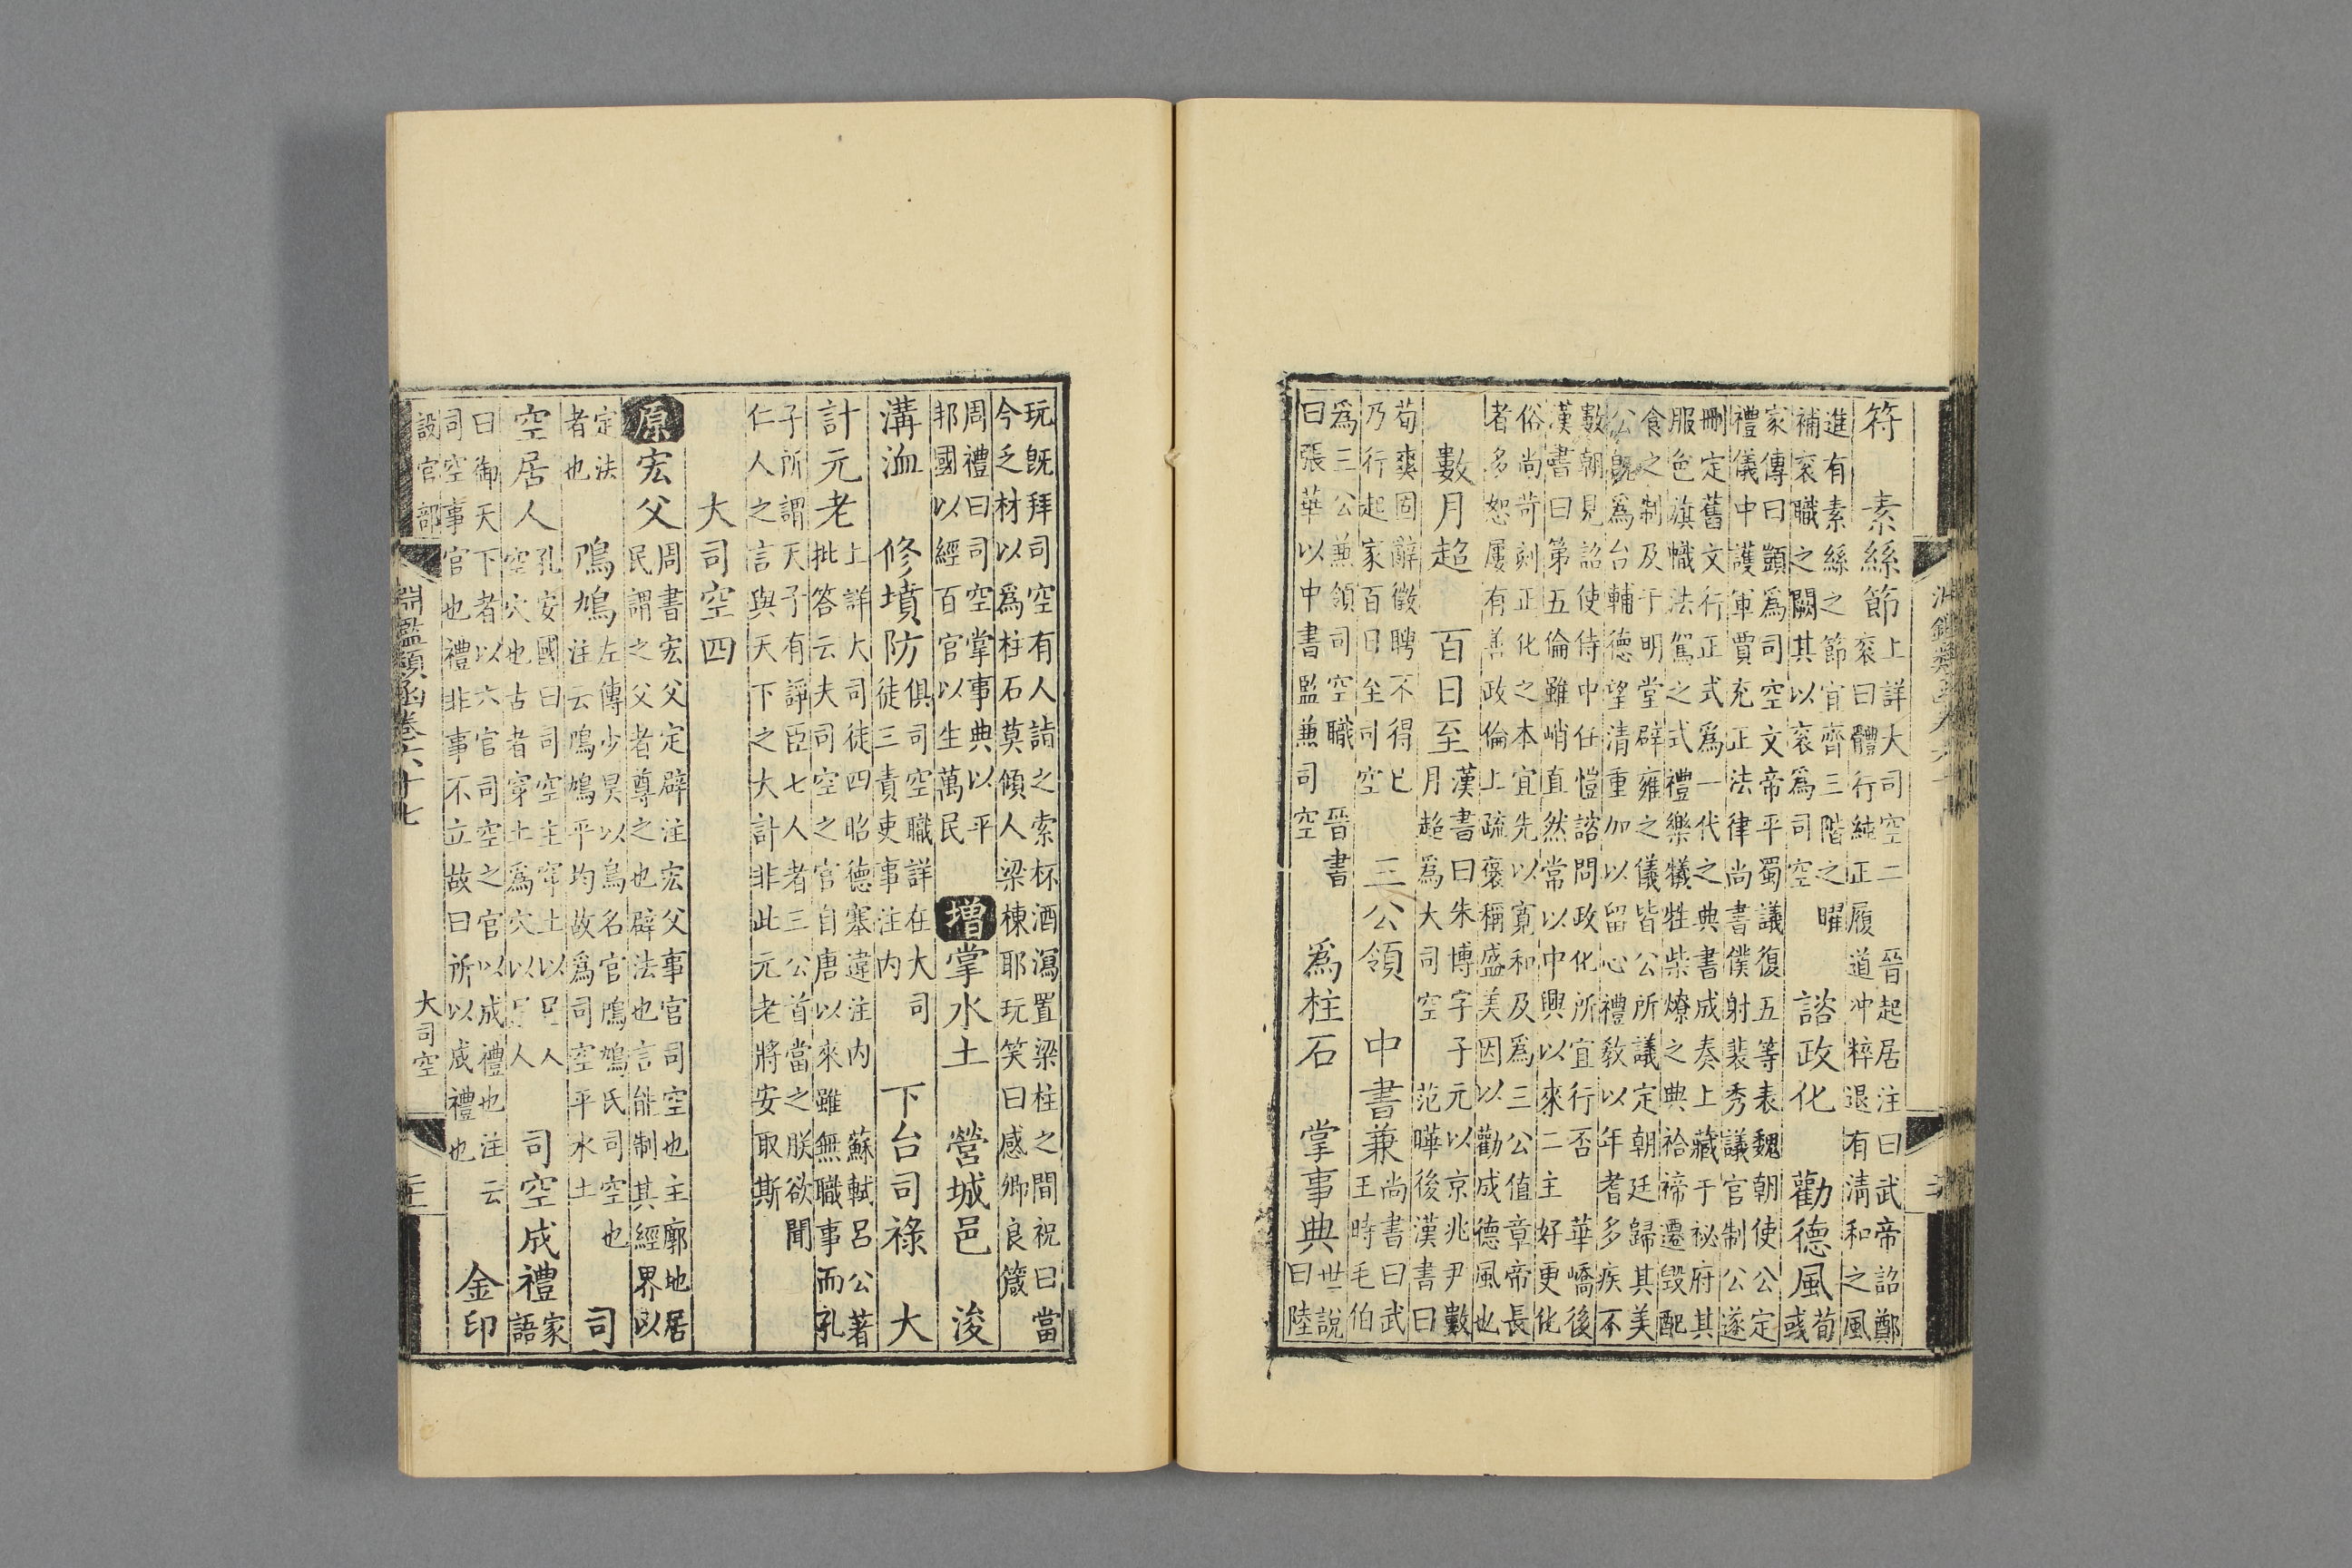 符　素絲節
上詳大司空二　晉起居注曰武帝詔鄭
袞曰體行純正履道冲粹退有清和之風
進有素絲之節宜齊三階之曜
補袞職之闕其以袞爲司空
諮政化　勸德風
荀
彧
家傳曰顗爲司空文帝平蜀議復五等表魏朝使公定
禮儀中護軍賈充正法律尚書僕射裴秀議官制公遂
刪定舊文行正式爲一代之典書成奏上藏于祕府其
服色旗幟法駕之式禮樂犧牲柴燎之典祫禘遷毀配
食之制及于明堂辟雍之儀皆公所議定朝廷歸其美
公旣爲台輔德望清重加以留心禮教以年耆多疾不
數朝見詔使侍中任愷諮問政化所宜行否　華嶠後
漢書曰第五倫雖峭直然常以中興以來二主好更化
俗尚苛刻正化之本宜先以寬和及爲三公值章帝長
者多恕屢有善政倫上疏褒稱盛美因以勸成德風也
數月超　百日至
漢書曰朱博字子元以京兆尹數
月超爲大司空　范曄後漢書曰
荀爽固辭徵聘不得已
乃行起家百日至司空
三公領　中書兼
尚書曰武
王時毛伯
爲三公兼領司空職　晉書
曰張華以中書監兼司空
爲柱石　掌事典
世說
曰陸
玩旣拜司空有人詣之索杯酒瀉置梁柱之間祝曰當
今乏材以爲柱石莫傾人梁棟耶玩笑曰感卿良箴
周禮曰司空掌事典以平
邦國以經百官以生萬民
增掌水土　營城邑　浚
溝洫　修墳防
俱司空職詳在大司
徒三責吏事注内
下台司祿　大
計元老
上詳大司徒四昭德塞違注内　蘇軾呂公著
批答云夫司空之官自唐以來雖無職事而孔
子所謂天子有諍臣七人者三公首當之朕欲聞
仁人之言與天下之大計非此元老將安取斯
大司空四
原宏父
周書宏父定辟注宏父事官司空也主廓地居
民謂之父者尊之也辟法也言能制其經界以
定法
者也
鳲鳩
左傳少昊以鳥名官鳲鳩氏司空也
注云鳲鳩平均故爲司空平水土
司
空居人
孔安國曰司空主穿土以居人
空穴也古者穿土爲穴以居人
司空成禮
家
語
曰御天下者以六官司空之官以成禮也注云
司空事官也禮非事不立故曰所以成禮也
金印
設官部
淵鑑類函卷六十七
大司空
三